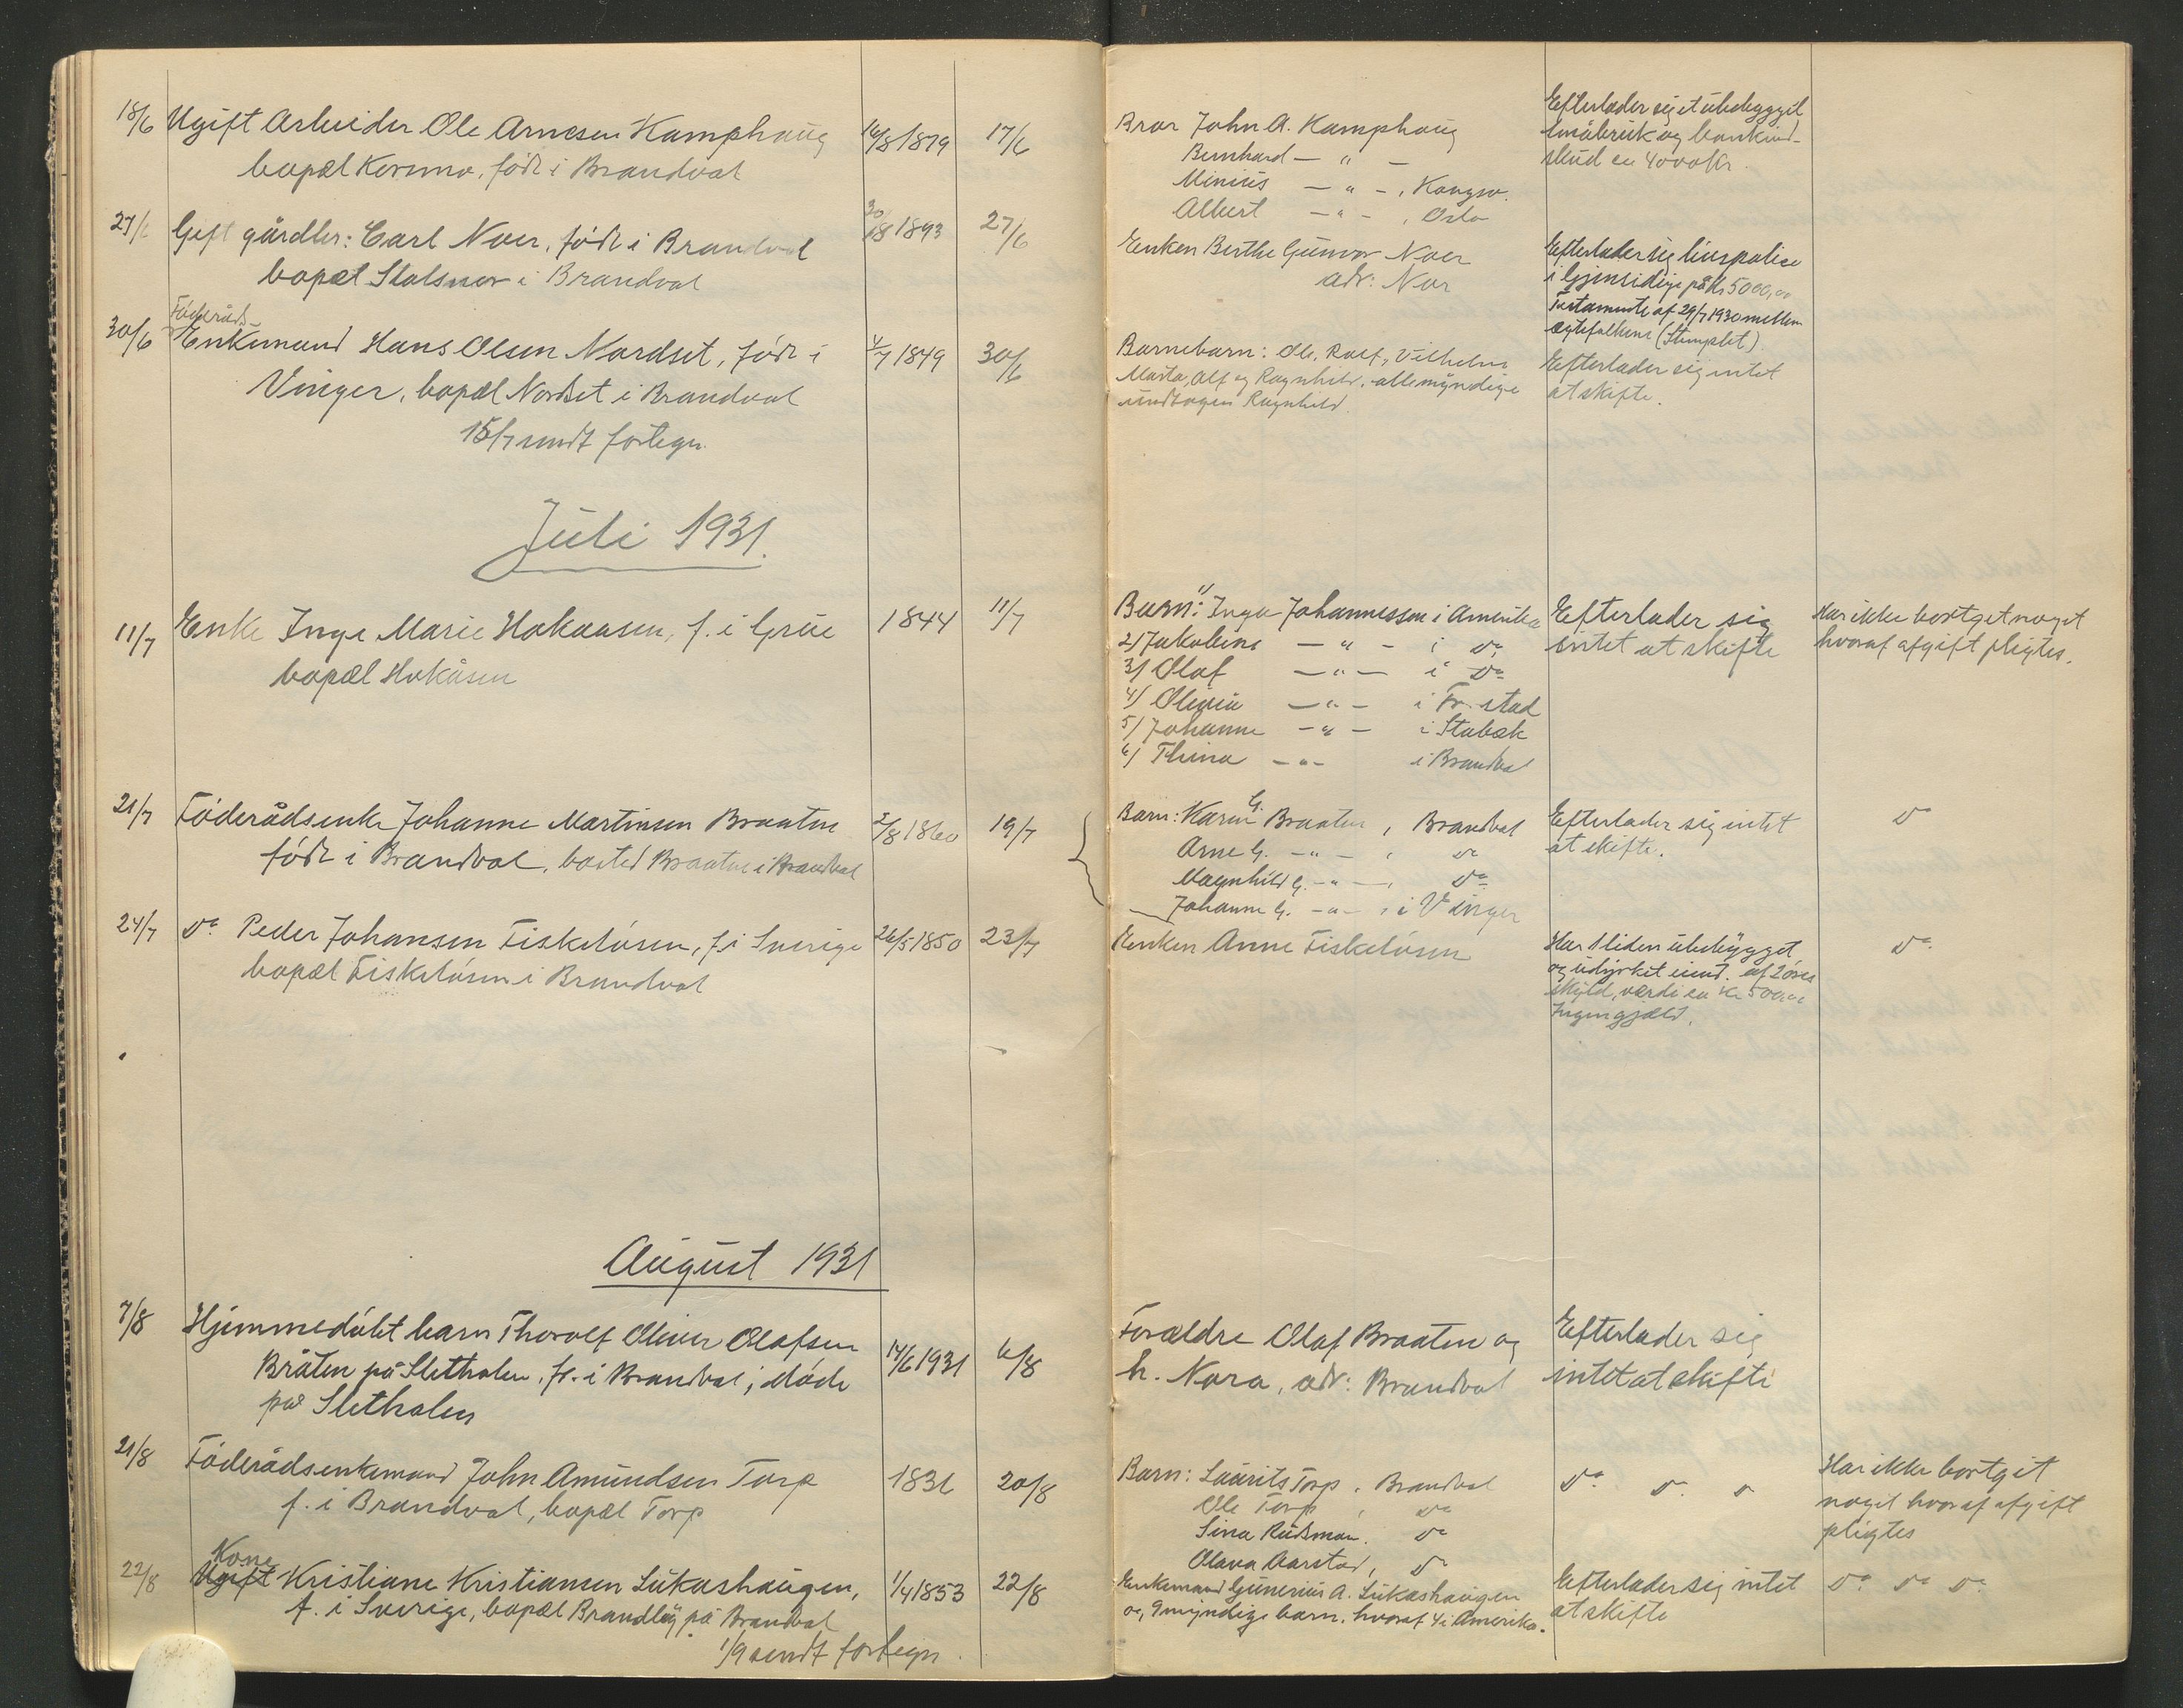 18/6 Ugift Arbeider Ole Arnesen Kamphaug 16/8 1879 17/6
bopæl Kornmo, född i Brandval
27/6 Gift gårdbr: Carl Noer, föðt i Brandval 20/8 1893 27/6
bopæl Slotsnor i Brandval
Föderåds-
30/6 Enkemand Hans Olsen Nordset, födt i 4/7 1849 30/6
Vinger, bopæl Nordset i Brandval
15/7 sendt fortegn.
Juli 1931.
11/7 Enke Inge Marie Hokaasen, f. i Grue 1844 11/7
bopæl Hokåsen
21/7 Föderådsenke Johanne Martinsen Braaten 2/8 1860 19/7
födt i Brandval, bosted Braaten i Brandval
24/7 Do Peder Johansen Fiskelösen, f. i Sverige 26/5 1850 23/7
bopæl Fiskelösen i Brandval
August 1931
7/8 Hjemmedöbt barn Thorolf Oliver Olafsen
Bråten på Sletholen, f. i Brandval, döde 14/6 1931 6/8
på Sletholen
21/8 Föderådsenkemand John Amundsen Torp 1836 20/8
f. i Brandval, bopæl Torp
Kone
22/8 Ugift Kristiane Kristiansen Lukashaugen, 1/4 1853 22/8
f. i Sverige, bopæl Brandlög på Brandval
1/9 sendt fortegn.
Bror John A. Kamphaug
Bernhard — " —
Minius — " — , Kongsv.
Albert — " — , Oslo
Efterlader sig et ubebygget
småbruk og bankind-
skud ca 4000 kr.
Enken Berthe Gunvor Noer
adr: Nor
Efterlader sig livspolice
i Gjensidige på kr 5000,00
Testamente af 29/7 1930 mellem
ægtefolkene (Stemplet)
Barnebarn: Ole, Rolf, Vilhelm
Marta, Alf og Ragnhild, alle myndige
undtagen Ragnhild.
Efterlader sig intet
at skifte.
Barn: 1/ Inga Johannessen i Amerika
2/ Jakobine — " — i Do
3/ Olaf — " — i Do
4/ Olivia — " — i Fr.stad
5/ Johanne — " — i Stabæk
6/ Thina — " — i Brandval
Efterlader sig
intet at skifte
Har ikke bortget noget
hvoraf afgift pligtes.
Barn: Karen G. Braaten, Brandval
Arne G. — " — , Do
Magnhild G. — " — , Do
Johanne G. — " — , i Vinger
Efterlader sig intet
at skifte.
Do
Enken Anne Fiskelösen
Har 1 liden ubebygget
og udyrket eiend. af 2 öres
skyld, værdi ca kr 500,00
Ingen gjæld.
Do
Forældre Olaf Braaten og
h. Nora, adr: Brandval
Efterlader sig
intet at skifte
Barn: Laurits Torp, Brandval
Ole Torp, Do
Sina Rudsmoen, Do
Olava Aarstad, Do
Do Do Do
Har ikke bortgit
noget hvoraf afgift
pligtes
Enkemand Gunerius A. Lukashaugen
og 9 myndige barn, hvoraf 4 i Amerika.
Efterlader sig intet
at skifte
Do Do Do